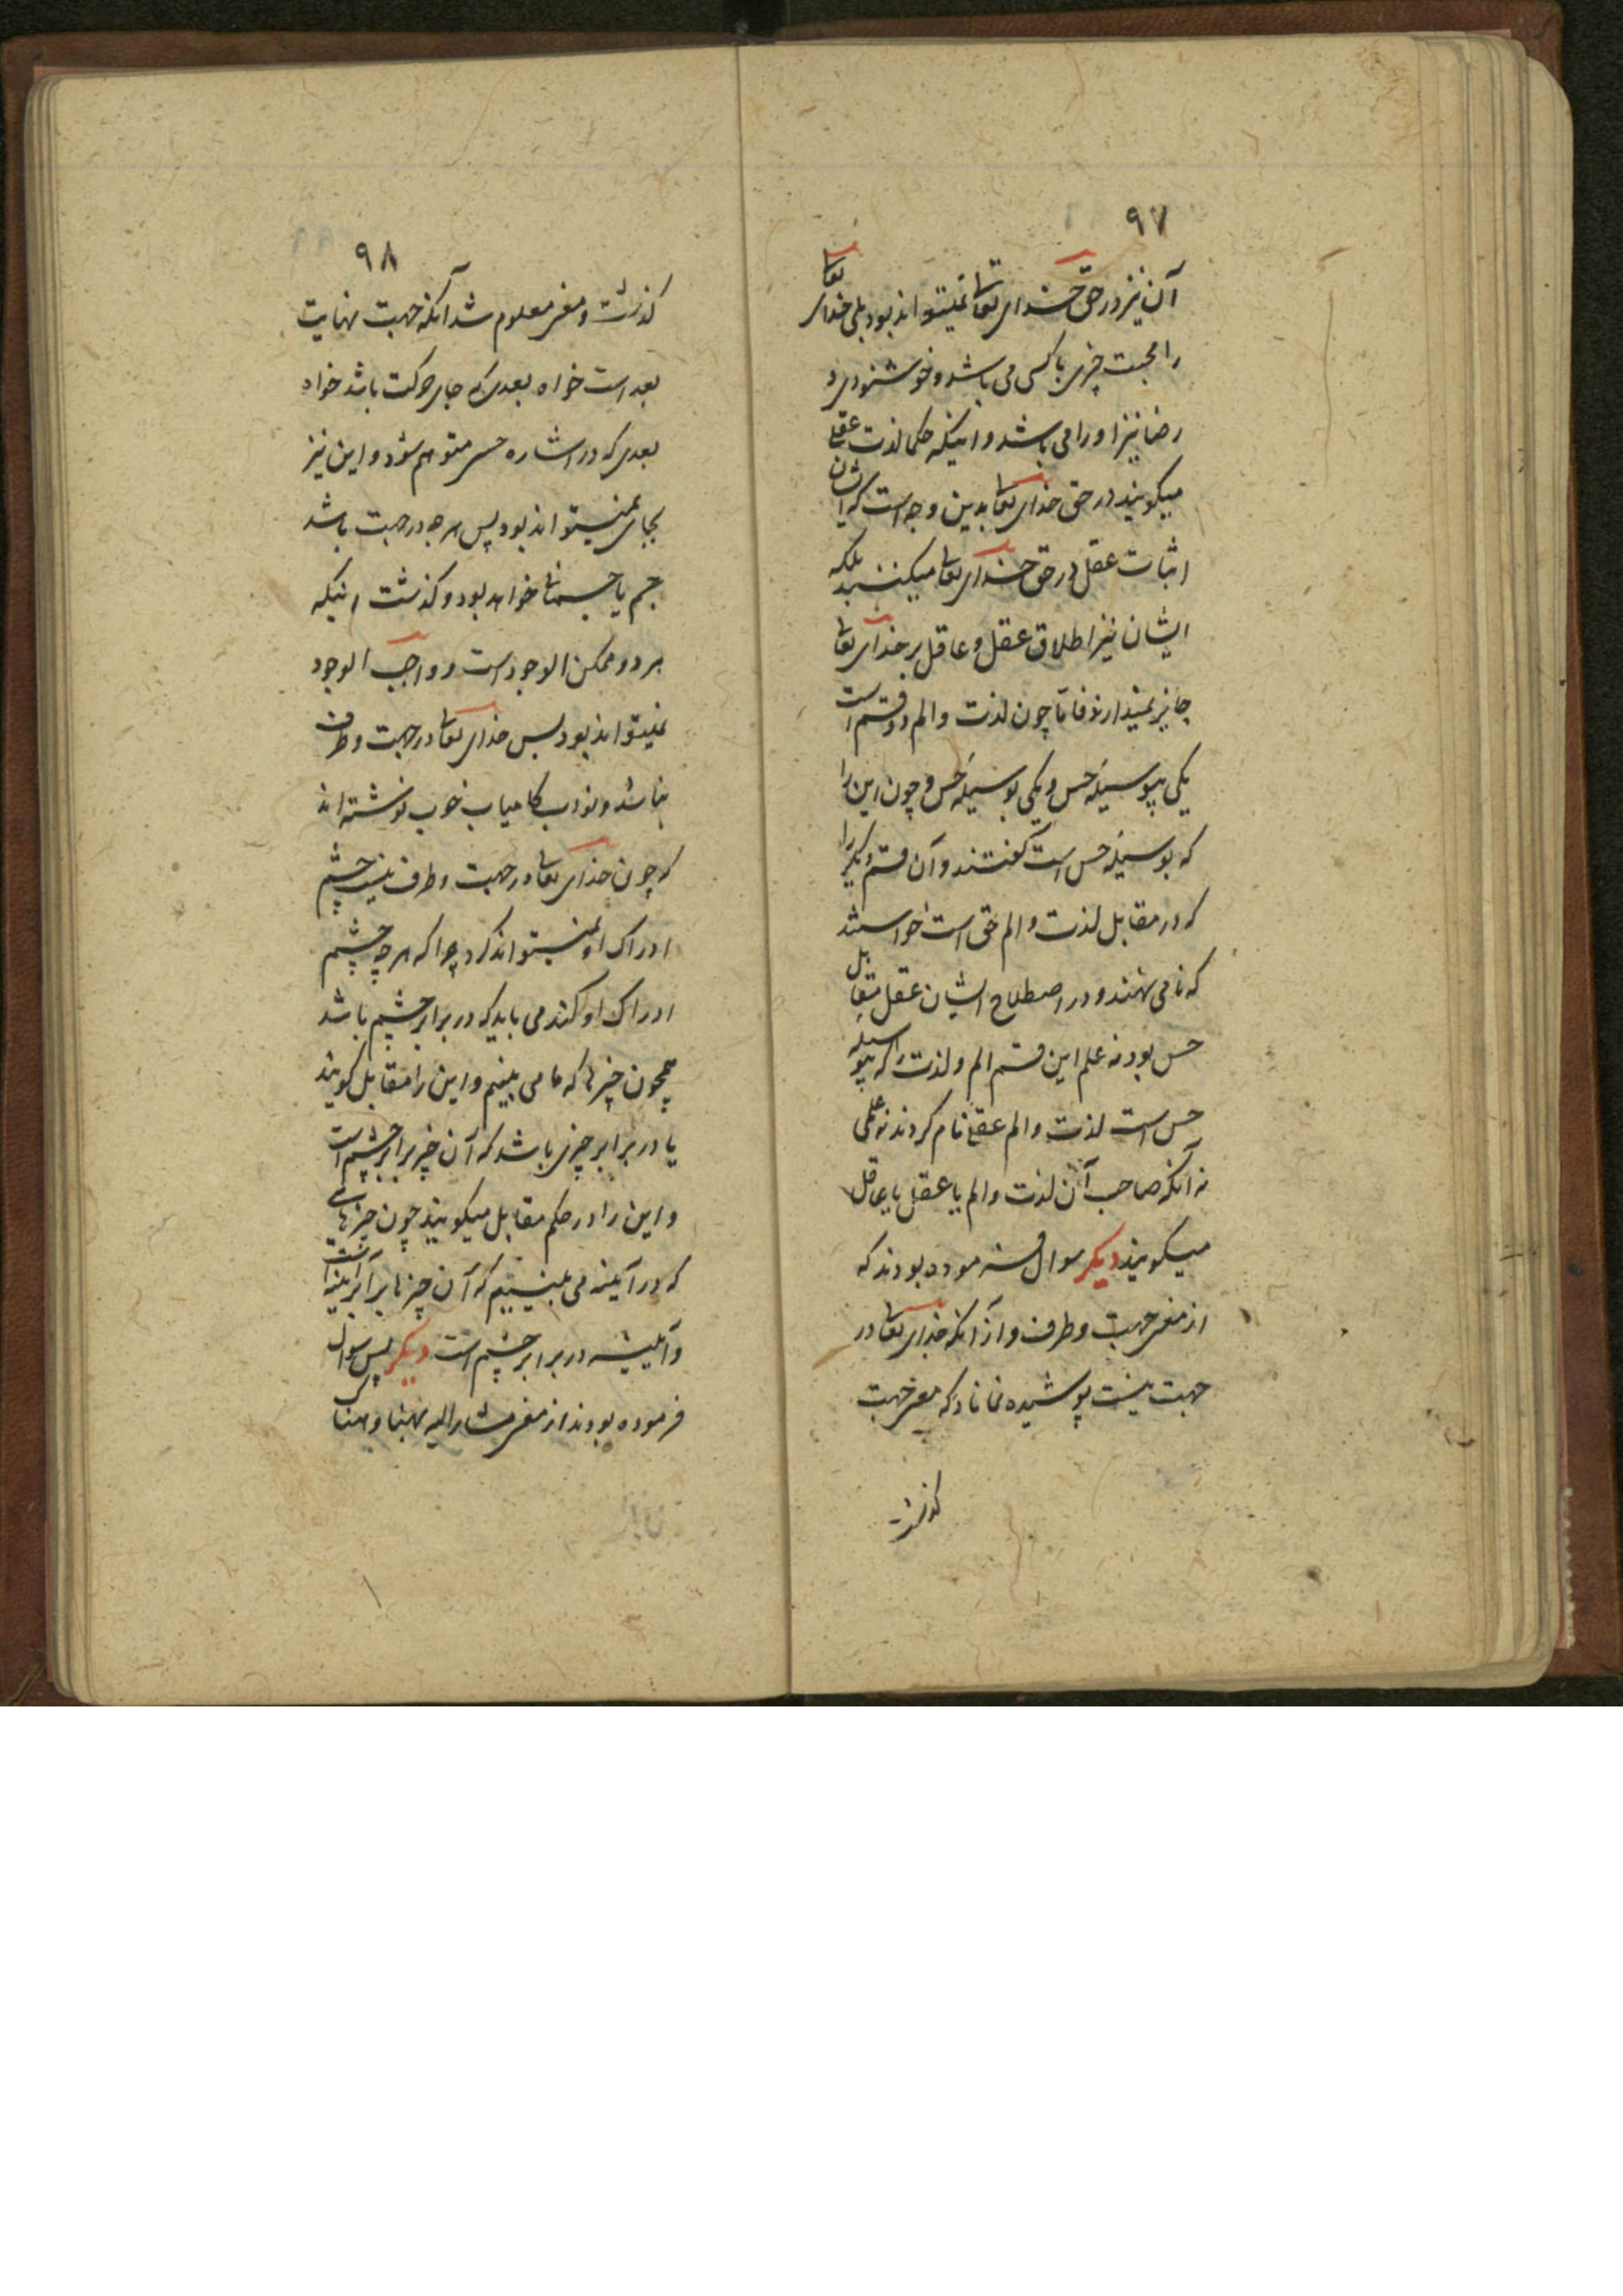 ۹۷
آن نیز در حق خدای تعالی نمیتواند بود بلی خدای تعالی
را محبت چیزی یا کسی می باشد و خوشنودی و
رضا نیز او را می باشد و اینکه حکما لذت عقلی
میگویند در حق خدای تعالی بدین وجه است که ایشان
اثبات عقل در حق خدای تعالی میکنند بلکه
ایشان نیز اطلاق عقل و عاقل بر خدای تعالی
جایز نمیدارند فاما چون لذت و الم دو قسم است
یکی بیوسیله حس و یکی بوسیله حس و چون این را
که بوسیله حس است گفتند و آن قسم دیگر را
که در مقابل لذت و الم حسی است خواستند
که نامی نهند و در اصطلاح ایشان عقل مقابل
حس بود نه علم این قسم الم و لذت را که بیوسیله
حس است لذت و الم عقلی نام کردند نه علمی
نه آنکه صاحب آن لذت و الم یا عقل یا عاقل
میگویند دیگر سوال فرموده بودند که
از معنی جهت و طرف و از آنکه خدای تعالی در
جهت نیست پوشیده نماناد که معنی جهت
گذشت
۹۸
گذشت و معنی معلوم شد آنکه جهت نهایت
بعد است خواه بعدی که جای حرکت باشد خواه
بعدی که در اشاره حسی متوهم شود و این نیز
بجای نمیتواند بود پس هر چه در جهت باشد
جسم یا جسمانی خواهد بود و گذشت اینکه
هر دو ممکن الوجود است و واجب الوجود
نمیتواند بود پس خدای تعالی در جهت و طرف
نباشد و نواب کامیاب خوب نوشته اند
که چون خدای تعالی در جهت و طرف نیست چشم
ادراک او نمیتواند کرد چرا که هر چه چشم
ادراک او کند می باید که در برابر چشم باشد
همچون چیزها که ما می بینیم و این را مقابل گویند
یا در برابر چیزی باشد که آن چیز برابر چشم است
و این را در حکم مقابل میگویند چون چیزهایی
که در آیینه می بینیم که آن چیزها برابر آیینه است
و آیینه در برابر چشم است دیگر پس سوال
فرموده بودند از معنی مشار الیه بهنا و هناک